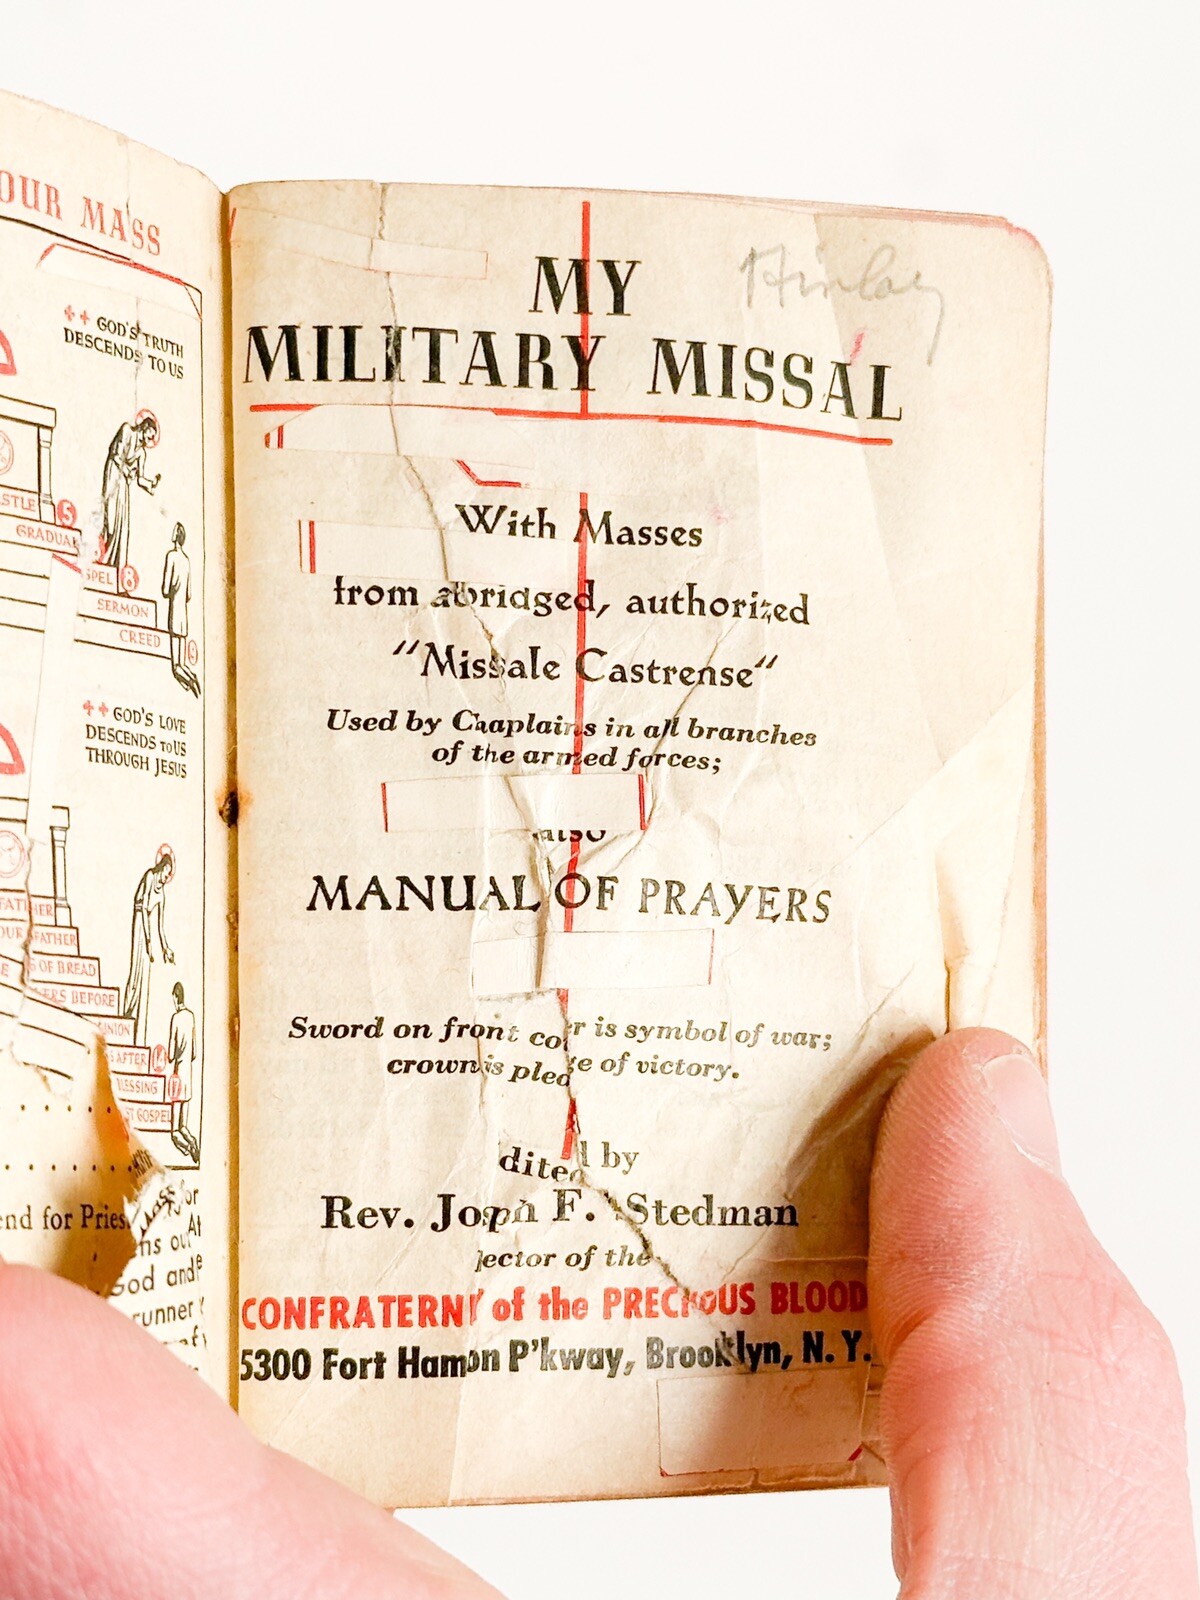 OUR MASS
GOD'S TRUTH
DESCENDS TO US
5
GRADUAL
8
SERMON
CREED
GOD'S LOVE
DESCENDS TO US
THROUGH JESUS
FATHER
OUR FATHER
OF BREAD
BEFORE
AFTER
BLESSING
GOSPEL
for
God and
MY
Finlay
MILITARY MISSAL
With Masses
from abridged, authorized
"Missale Castrense"
Used by Chaplains in all branches
of the armed forces;
also
MANUAL OF PRAYERS
Sword on front cover is symbol of war;
crown is pledge of victory.
dited by
Rev. Joseph F. Stedman
ector of the
CONFRATERNITY of the PRECIOUS BLOOD
5300 Fort Hamilton P'kway, Brooklyn, N. Y.